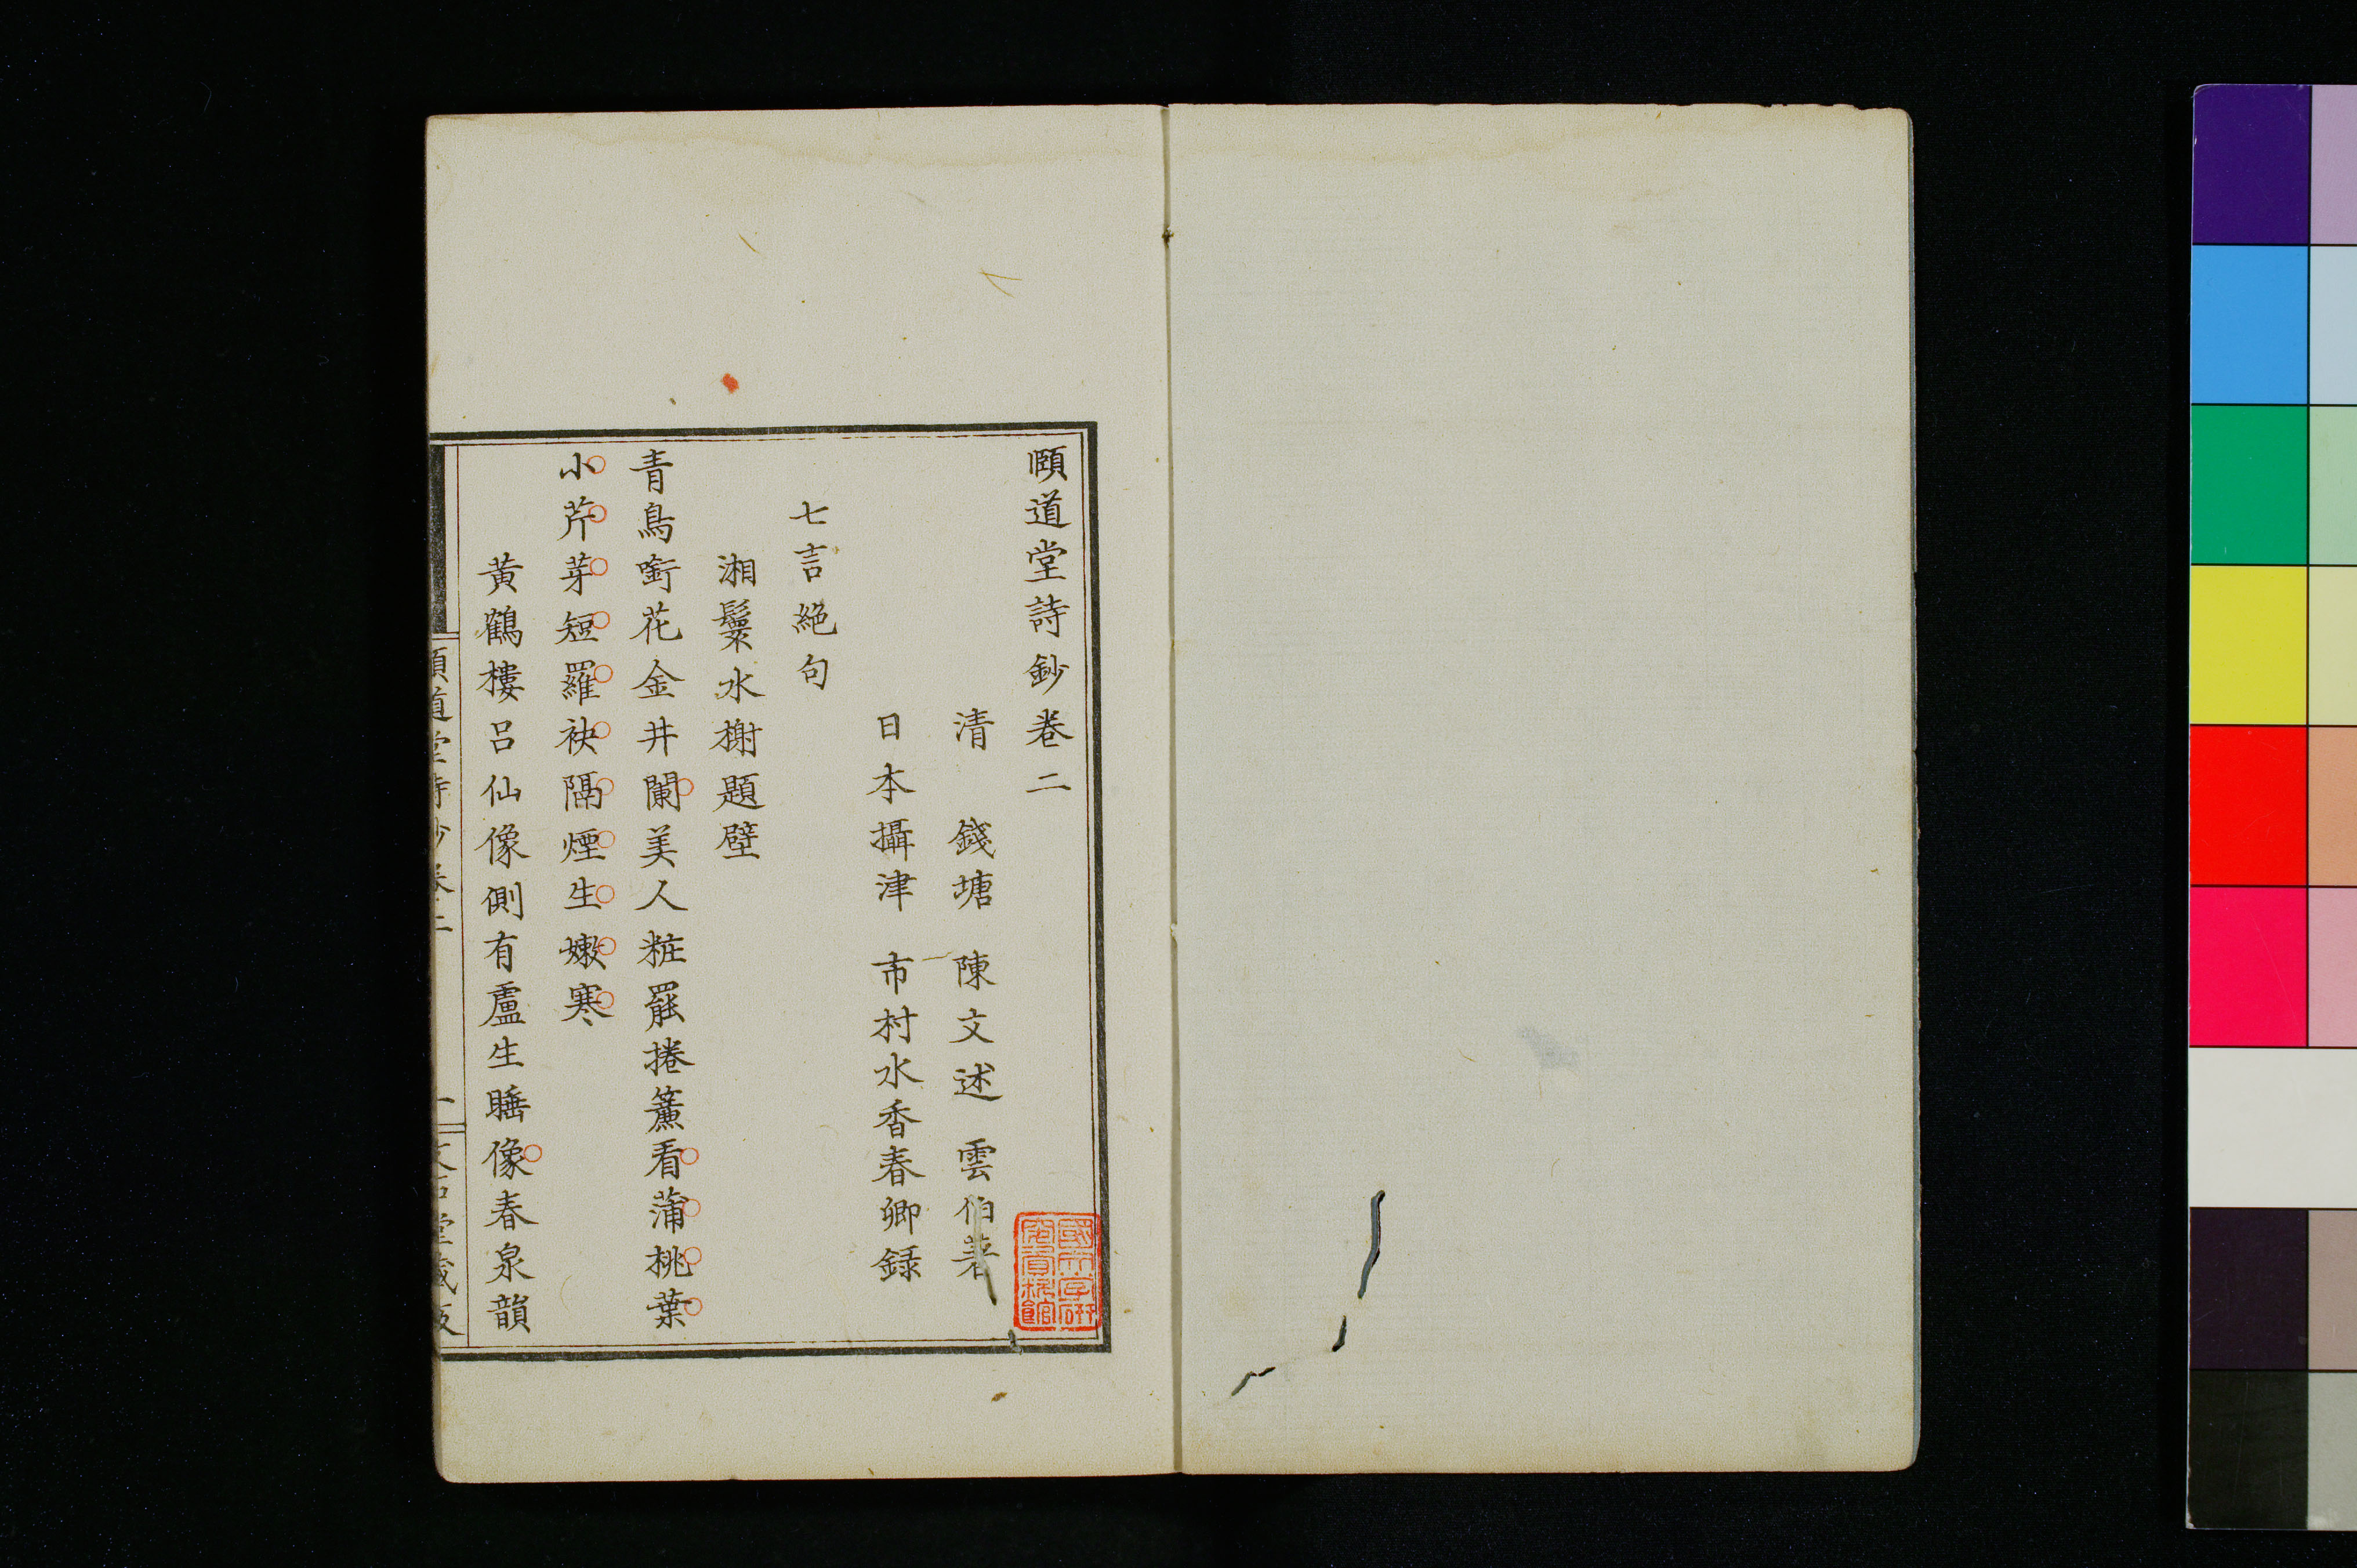 頤道堂詩鈔卷二
清　錢塘　陳文述　雲伯著
日本攝津　市村水香春卿録
七言絶句
湘鬟水榭題壁
青鳥銜花金井闌美人粧罷捲簾看蒲桃葉
小芹芽短羅袂隔煙生嫩寒
黃鶴樓呂仙像側有盧生睡像春泉韻
頤道堂詩鈔卷二　一
國文学研
究資料館